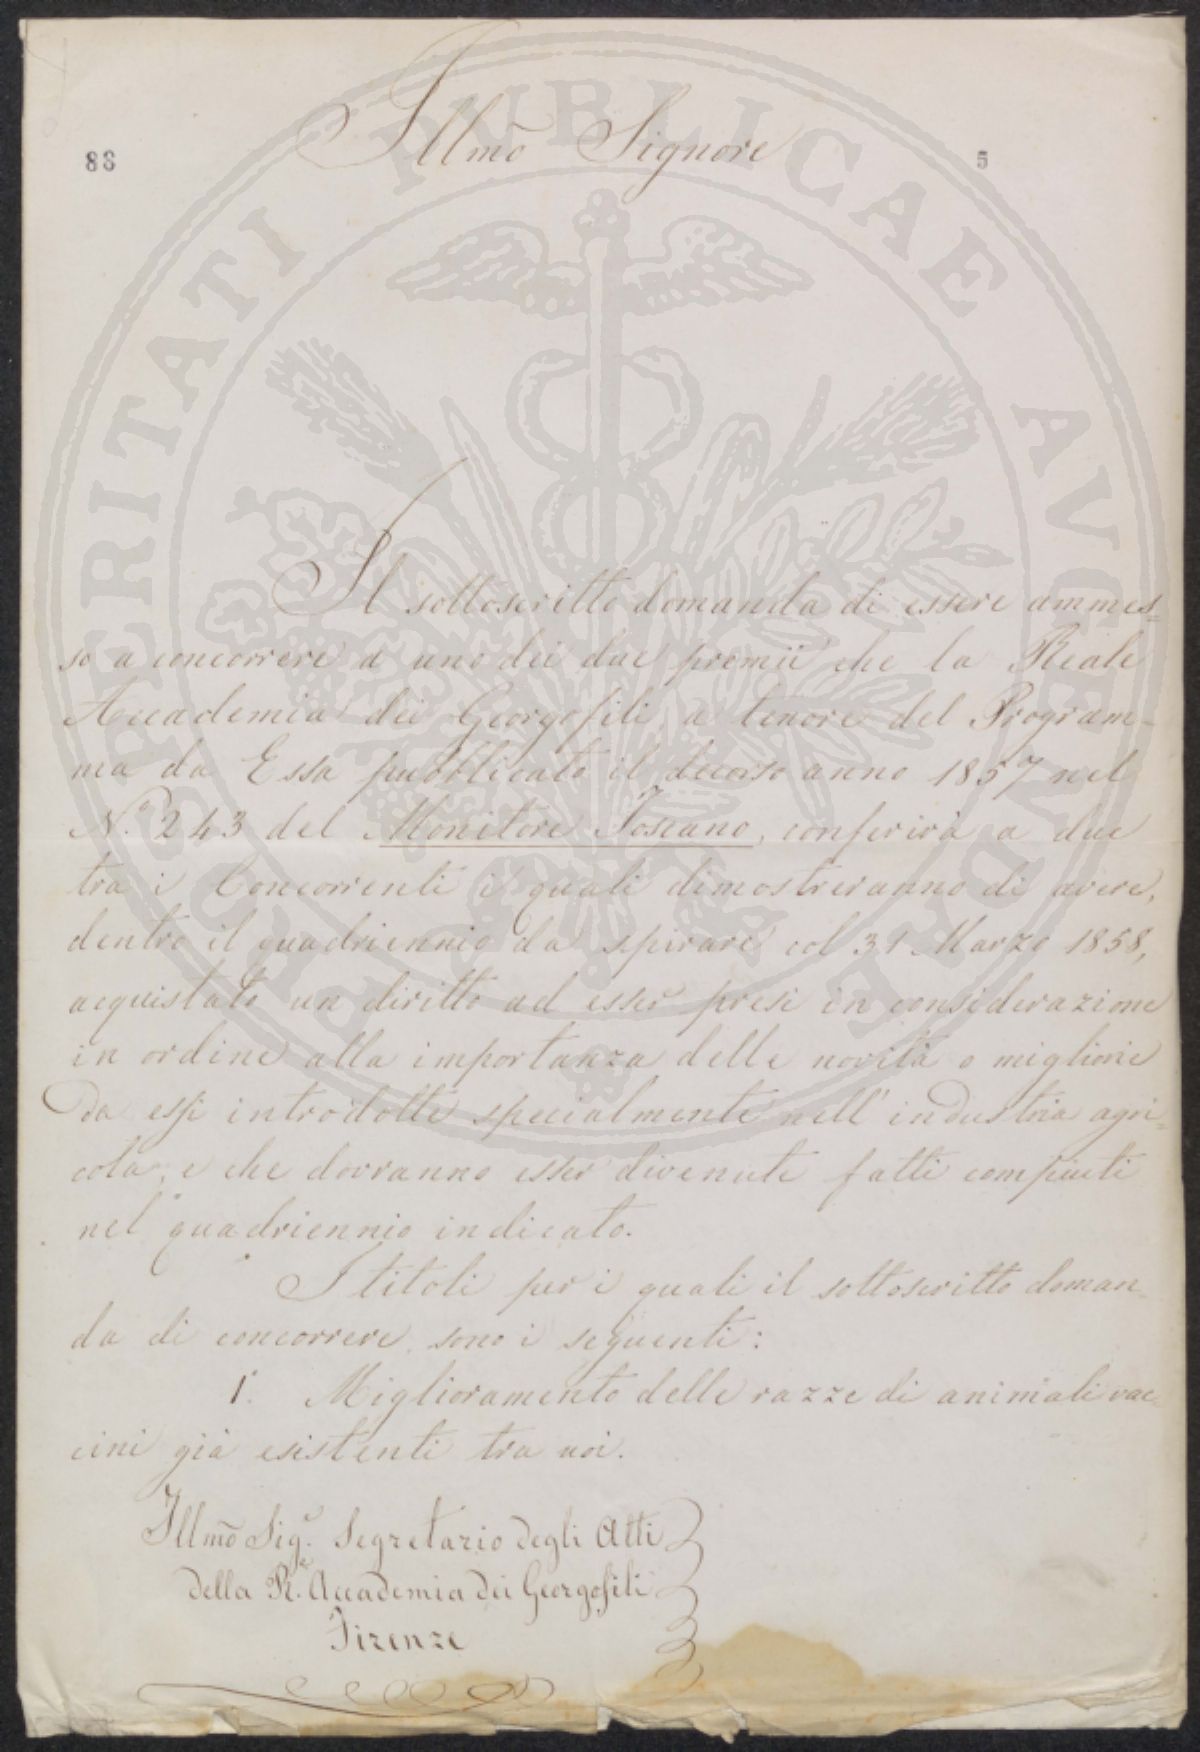 Illmo Signore
83
5
Il sottoscritto domanda di essere ammes=
so a concorrere a uno dei due premii che la Reale
Accademia dei Georgofili, a tenore del Program=
ma da Essa pubblicato il decorso anno 1857 nel
N.º 243 del Monitore Toscano, conferirà a due
tra i Concorrenti i quali dimostreranno di avere,
dentro il quadriennio da spirare col 31 Marzo 1858,
acquistato un diritto ad esser presi in considerazione
in ordine alla importanza delle novità o migliorie
da essi introdotte specialmente nell'industria agri=
cola, e che dovranno esser divenute fatti compiuti
nel quadriennio indicato.
I titoli per i quali il sottoscritto doman=
da di concorrere sono i seguenti:
1.º Miglioramento delle razze di animali vac=
cini già esistenti tra noi.
Illmo Sig.e Segretario degli Atti
della R.e Accademia dei Georgofili
Firenze
PROSPERITATI PUBLICAE AUGENDAE